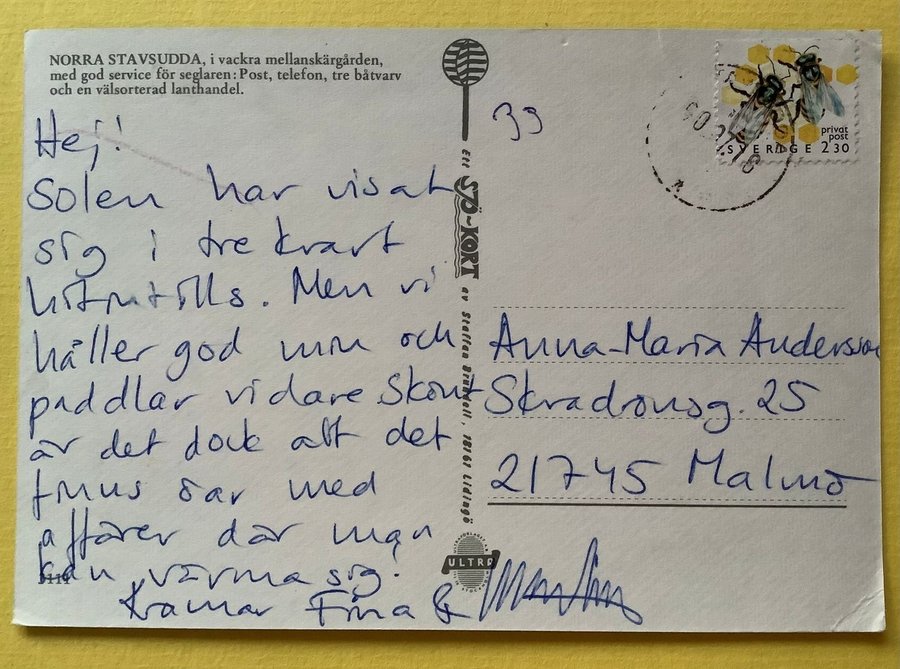 NORRA STAVSUDDA, i vackra mellanskärgården,
med god service för seglaren: Post, telefon, tre båtvarv
och en välsorterad lanthandel.
Hej!
Solen har visat
sig i tre kvart
hitintills. Men vi
håller god min och
paddlar vidare. Skönt
är det dock att det
finns öar med
affärer där man
kan värma sig!
Kramar Fina &
3111
Ett SJÖ-KORT av Staffan Brundell, 18161 Lidingö
ULTRA
39
privat
post
SVERIGE 2 30
Anna-Maria Andersson
Skvadronsg. 25
21745 Malmö